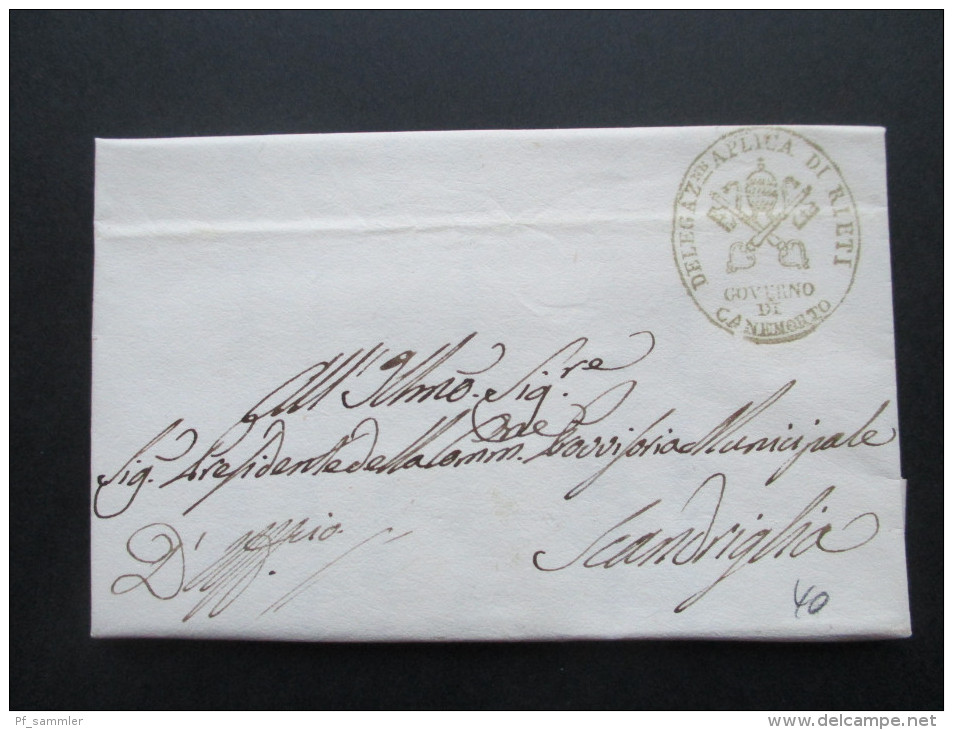 DELEGAZ.NE APLICA DI RIETI
GOVERNO
DI
CANEMORTO
All' Illmo. Sig.re
Sig. Presidente della Comm.ne Provvisoria Municipale
D'Offizio.
Scandriglia
40
Pf_sammler
www.delcampe.net